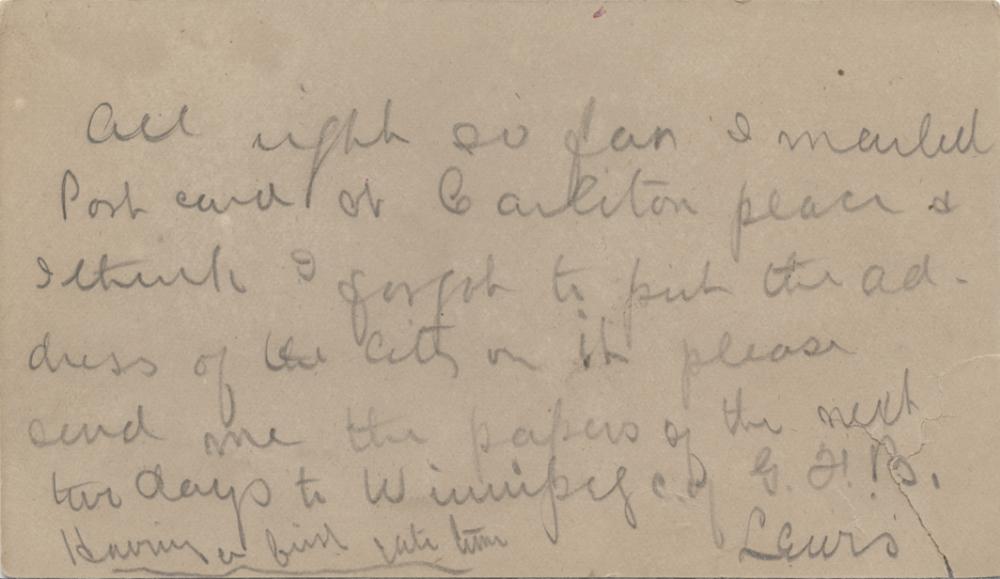 All right so far I mailed
Post card at Carleton place &
I think I forgot to put the ad-
dress of the City on it please
send me the papers of the next
two days to Winnipeg c.o. G. H. B.
Having a first rate time Lewis